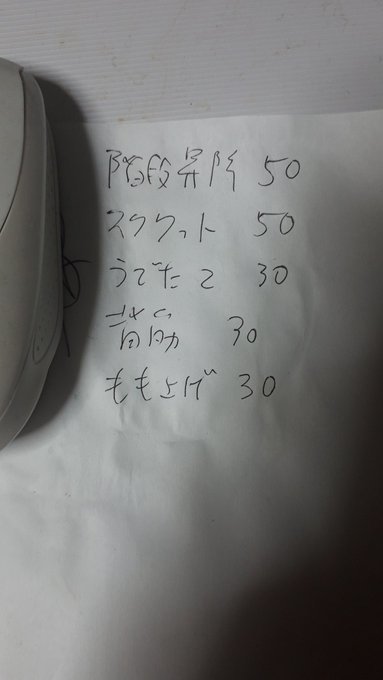 階段昇降 50
スクワット 50
うでたて 30
背筋 30
もも上げ 30